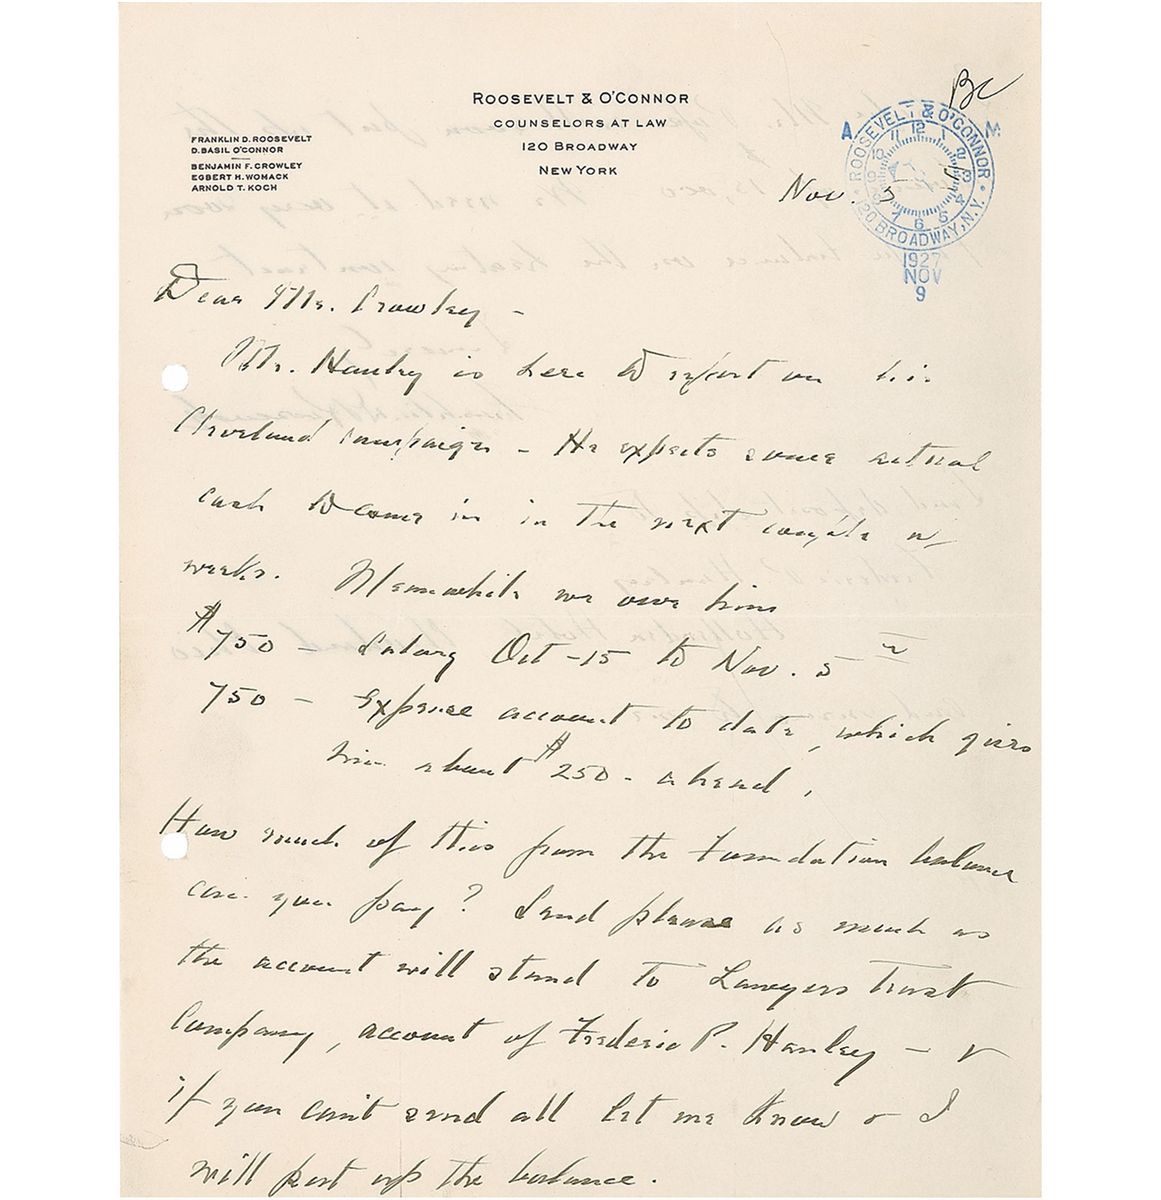 BC
ROOSEVELT & O'CONNOR
COUNSELORS AT LAW
120 BROADWAY
NEW YORK
FRANKLIN D. ROOSEVELT
D. BASIL O'CONNOR
BENJAMIN F. CROWLEY
EGBERT H. WOMACK
ARNOLD T. KOCH
A M
ROOSEVELT & O'CONNOR
120 BROADWAY, N.Y.
12 1 2 3 4 5 6 7 8 9 10 11
1927
NOV
9
Nov. 5
Dear Mr. Crowley -
Mr. Hanley is here to report on his
Cleveland campaign - He expects some actual
cash to come in in the next couple of
weeks. Meanwhile we owe him
$750 - Salary Oct-15 to Nov. 5
750 - Expense account to date, which gives
him about $250 - ahead.
How much of this from the Foundation balance
can you pay? Send please as much as
the account will stand to Lawyers Trust
Company, account of Frederic P. Hanley - &
if you can't send all let me know & I
will put up the balance.